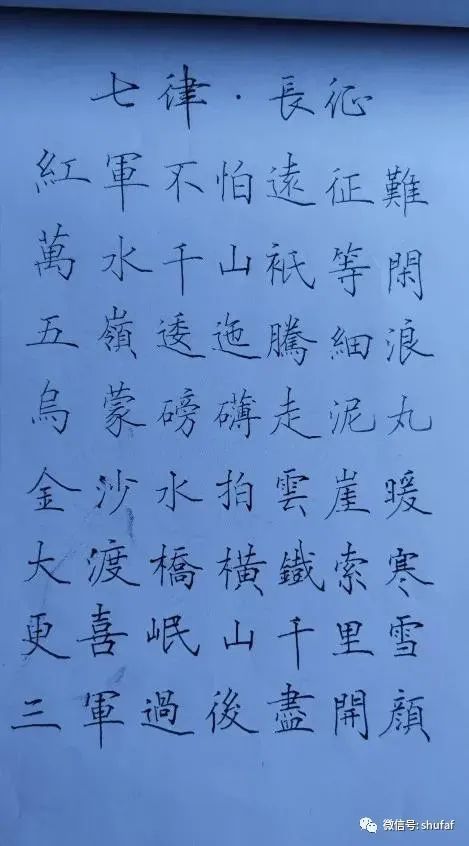 七律·長征
紅軍不怕遠征難
萬水千山衹等閑
五嶺逶迤騰細浪
烏蒙磅礴走泥丸
金沙水拍雲崖暖
大渡橋橫鐵索寒
更喜岷山千里雪
三軍過後盡開顏
微信号: shufaf